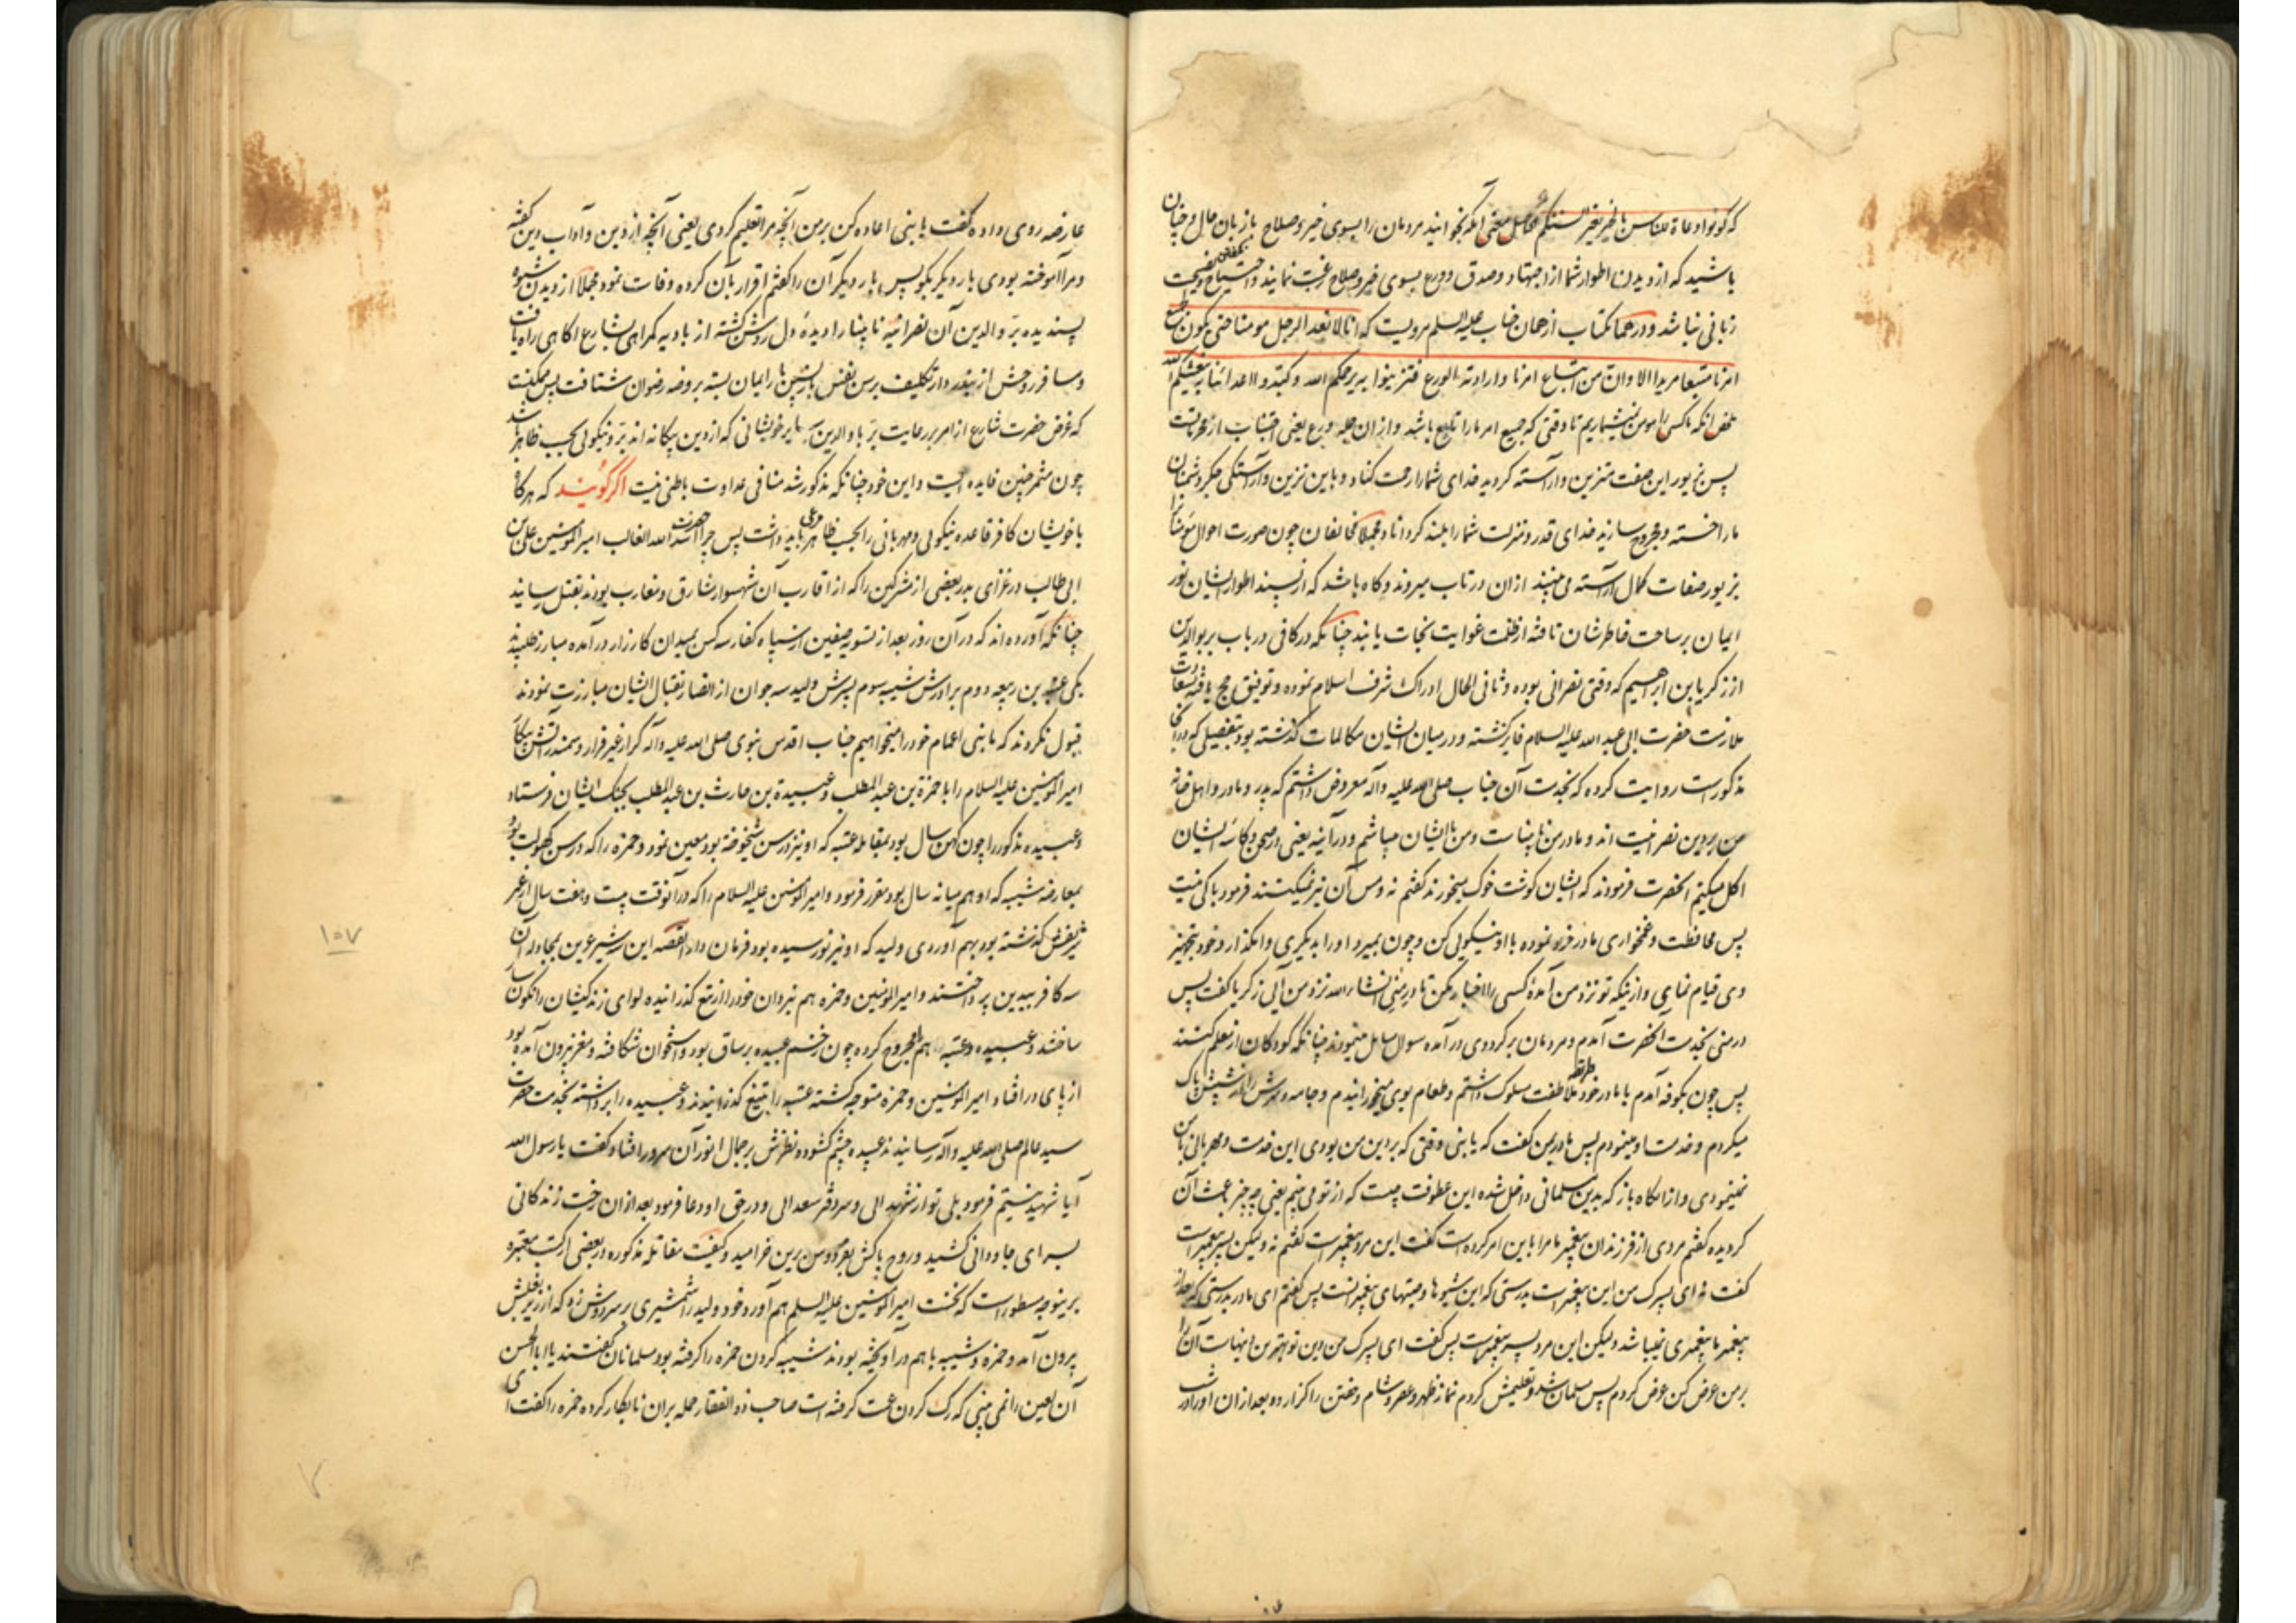 که کونوا دعاة للناس بالخیر بغیر السنتکم محصل معنی آنکه بخوانید مردمان را بسوی خیر و صلاح باز بان حال و چنان
باشید که از دیدن اطوار شما از اجتهاد و صدق و ورع بسوی خیر و صلاح رغبت نمایند و احتیاج بگفتن نصیحت
زبانی نباشد و در همان کتاب از همان جناب علیه السلم مرویست که انا لا نعد الرجل مومنا حتی یکون بجمیع
امرنا متبعا مریدا الا وان من اتباع امرنا وارادته الورع فتزینوا به یرحمکم الله وکیدوا اعدائنا به ینعشکم الله
ملخص انکه ما کسی را مومن نمیشماریم تا وقتی که جمیع امر ما را تابع باشد و از ان جمله ورع یعنی اجتناب از محرماتست
پس بزیور این صفت متزین و آراسته گردید خدای شما را رحمت کناد و باین تزین و آراستگی جگر دشمنان
ما را خسته و مجروح سازید خدای قدر و منزلت شما را بلند گرداناد و مجملا مخالفان چون صورت احوال مومنانرا
بزیور صفات کمال آراسته می بینند ازان در تاب میروند و گاه باشد که از پسند اطوار ایشان نور
ایمان بر ساحت خاطرشان تافته از ظلمت غوایت نجات یابند چنانکه در کافی در باب بر بوالدین
از زکریا بن ابرهیم که وقتی نصرانی بوده و ثانی الحال ادراک شرف اسلام نموده و توفیق حج یافته بسعادت
ملازمت حضرت ابی عبد الله علیه السلام فایز گشته و در میان ایشان مکالمات گذشته بود بتفصیلی که در انجا
مذکورست روایت کرده که بخدمت آن جناب صلی الله علیه وآله معروض داشتم که پدر و مادر و اهل خانه
من بر دین نصرانیت اند و مادر من نابیناست و من با ایشان میباشم و در آنیه یعنی در صحن و کاسه ایشان
اکل میکنم انحضرت فرمودند که ایشان گوشت خوک میخورند گفتم نه و مس آن نیز نمیکنند فرمود باکی نیست
پس محافظت و غمخواری مادر خود نموده با او نیکویی کن و چون بمیرد او را بدیگری وامگذار و خود بتجهیز
وی قیام نمای و از اینکه تو نزد من آمدهٔ کسی را اخبار مکن تا در منی انشاء الله نزد من آیی زکریا گفت پس
در منی بخدمت انحضرت آمدم و مردمان بر گرد وی در آمده سوال مسایل مینمودند چنانکه گودکان از معلم کنند
پس چون بکوفه آمدم با مادر خود طریقه ملاطفت مسلوک داشتم و طعام بوی میخورانیدم و جامه و سرش را از شپش پاک
میکردم و خدمت او مینمودم پس مادر بمن گفت که یا بنی وقتی که بر دین من بودی این خدمت و مهربانی با من
نمینمودی و از انگاه باز که بدین مسلمانی داخل شده این عطوفت چیست که از تو می بینم یعنی چه چیز باعث آن
گردیده گفتم مردی از فرزندان پیغمبر ما مرا باین امر کرده است گفت این مرد پیغمبرست گفتم نه ولیکن پسر پیغمبرست
گفت نه ای پسرک من این پیغمبرست بدرستی که این شیوها وصیتهای پیغمبرانست پس گفتم ای مادر بدرستی که بعد از
پیغمبر ما پیغمبری نمیباشد ولیکن این مرد پسر پیغمبرست پس گفت ای پسرک من دین تو بهترین دینهاست آن را
بر من عرض کن عرض کردم پس مسلمان شد و تعلیمش کردم نماز ظهر و عصر و شام و خفتن را گزارده بعد ازان او را در شب
عارضه روی داده گفت یا بنی اعاده کن بر من آنچه مرا تعلیم کردی یعنی آنچه از دین و آداب دین گفته
و مرا آموخته بودی بار دیگر بگو پس بار دیگر آن را گفتم اقرار بآن کرده وفات نمود مجملا از دیدن شیوه
پسندیده بر والدین آن نصرانیه نابینا را دیدهٔ دل روشن گشته از بادیه گمراهی بشارع آگاهی راه یافت
و مسافر روحش از
که غرض حضرت شارع از امر برعایت بر با والدین یا بر خویشانی که از دین بیگانه اند بر و نیکویی بحسب ظاهر باشد
چون مثمر چنین فایده ایست و این خود چنانکه مذکور شد منافی عداوت باطنی نیست اگر گویند که هرگاه
با خویشان کافر قاعده نیکویی و مهربانی را بحسب ظاهر مرعی باید داشت پس چرا حضرت اسد الله الغالب امیر المومنین علی بن
ابی طالب در غزای بدر بعضی از مشرکین را که از اقارب آن شهسوار مشارق و مغارب بودند بقتل رسانید
چنانکه آورده اند که در آن روز بعد از تسویه صفین از سپاه کفار سه کس بمیدان کارزار در آمده مبارز طلبیدند
یکی عتبه بن ربیعه دوم برادرش شیبه سوم پسرش ولید سه جوان از انصار بقتال ایشان مبارزت نمودند
قبول نکردند که ما بنی اعمام خود را میخواهیم جناب اقدس نبوی صلی الله علیه وآله کرار غیر فرار و سمندر آتش پیکار
امیر المومنین علیه السلام را با حمزة بن عبد المطلب و عبیدة بن حارث بن عبد المطلب بجنگ ایشان فرستاد
و عبیده مذکور را چون کهن سال بود بمقابله عتبه که او نیز در سن شیخوخته بود معین نمود و حمزه را که در سن کهولت بود
بمعارضه شیبه که او هم میانه سال بود مقرر فرمود و امیر المومنین علیه السلام را که در آنوقت بیست و هفت سال از عمر
شریفش گذشته بود بهم آوردی ولید که او نیز نورسیده بود فرمان داد القصه این سه شیر عرین بمجادله آن
سه کافر بیدین پرداختند و امیر المومنین و حمزه هم نبردان خود را از تیغ گذرانیده لوای زندگیشان را نگونسار
ساختند و عبیده و عتبه هم را مجروح کرده چون زخم عبیده بر ساق بود و استخوان شکافته و مغز بیرون آمده بود
از پای در افتاد امیر المومنین و حمزه متوجه گشته عتبه را بتیغ گذرانیدند و عبیده را برداشته بخدمت حضرت
سید عالم صلی الله علیه وآله رسانیدند عبیده چشم گشوده نظرش بر جمال انور آن سرور افتاد و گفت یا رسول الله
آیا شهید نیستم فرمود بلی تو از شهدایی و سر دفتر سعدایی و در حق او دعا فرمود بعد ازان رخت زندگانی
بسرای جاودانی کشید و روح پاکش بفردوس برین خرامید و کیفیت مقاتله مذکوره در بعضی از کتب معتبره
برینوجه مسطورست که نخست امیر المومنین علیه السلم هم آورد خود ولید را شمشیری بر سر دوش زد که از زیر بغلش
بیرون آمد و حمزه و شیبه با هم در آویخته بودند شیبه گردن حمزه را گرفته بود مسلمانان گفتند یا ابا الحسن
آن لعین را نمی بینی که رگ گردن عمت گرفته است صاحب ذو الفقار حمله بران نابکار کرده حمزه را گفت ای
۱۰۷